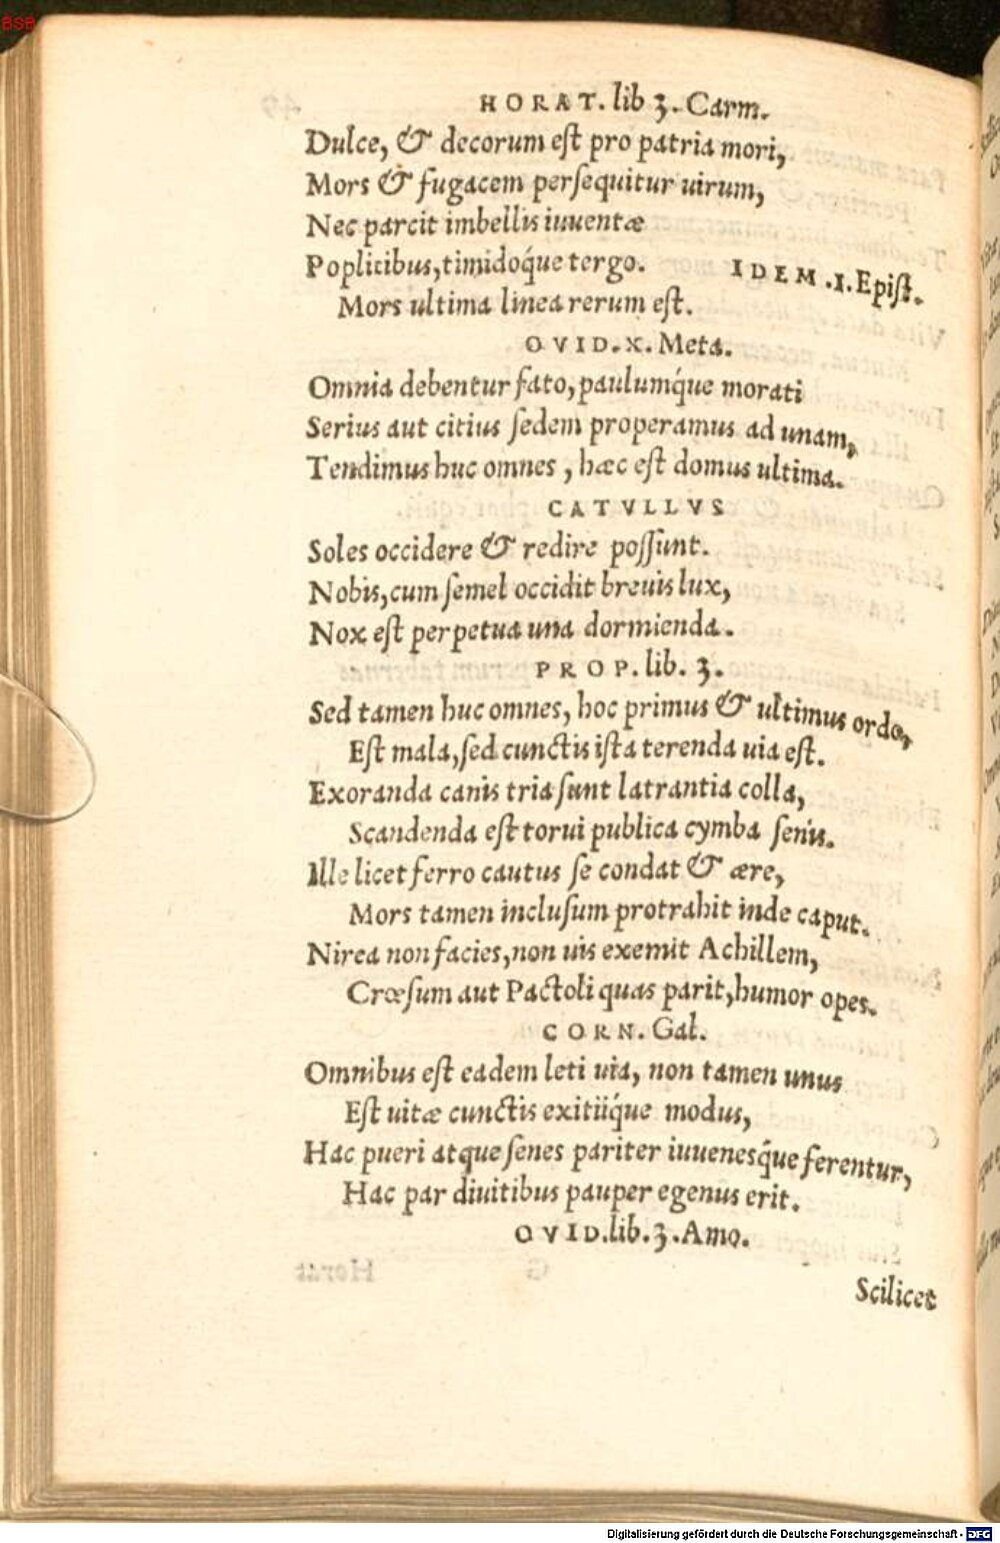 HORAT. lib 3. Carm.
Dulce, & decorum eſt pro patria mori,
Mors & fugacem perſequitur uirum,
Nec parcit imbellis iuuentæ
Poplitibus, timidoq́ue tergo. IDEM .1. Epiſt.
Mors ultima linea rerum eſt.
OVID. X. Meta.
Omnia debentur fato, paulumq́ue morati
Serius aut citius ſedem properamus ad unam,
Tendimus huc omnes, hæc eſt domus ultima.
CATVLLVS
Soles occidere & redire poſſunt.
Nobis, cum ſemel occidit breuis lux,
Nox eſt perpetua una dormienda.
PROP. lib. 3.
Sed tamen huc omnes, hoc primus & ultimus ordo,
Eſt mala, ſed cunctis iſta terenda uia eſt.
Exoranda canis tria ſunt latrantia colla,
Scandenda eſt torui publica cymba ſenis.
Ille licet ferro cautus ſe condat & ære,
Mors tamen incluſum protrahit inde caput.
Nirea non facies, non uis exemit Achillem,
Crœſum aut Pactoli quas parit, humor opes.
CORN. Gal.
Omnibus eſt eadem leti uia, non tamen unus
Eſt uitæ cunctis exitiiq́ue modus,
Hac pueri atque ſenes pariter iuuenesq́ue ferentur,
Hac par diuitibus pauper egenus erit.
OVID. lib. 3. Amo.
Scilicet
BSB
Digitalisierung gefördert durch die Deutsche Forschungsgemeinschaft - DFG